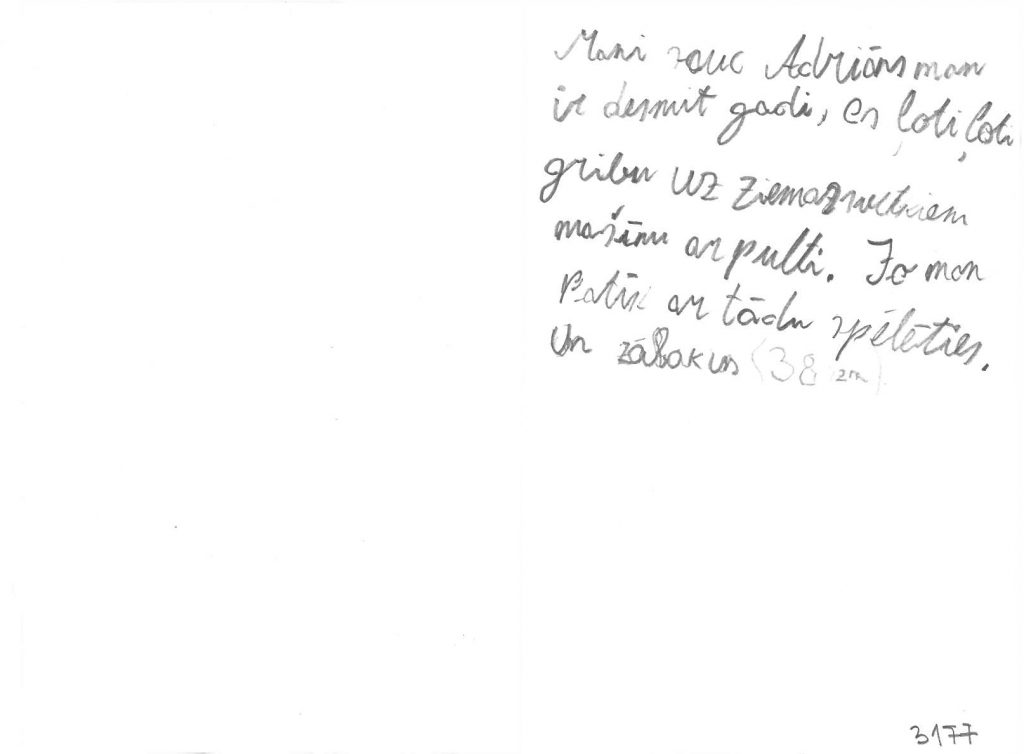 Mani sauc Adriāns man
ir desmit gadi, es ļoti ļoti
gribu uz Ziemassvētkiem
mašīnu ar pulti. Jo man
Patīk ar tādu spēlēties.
Un zābakus (38 zm)
3177